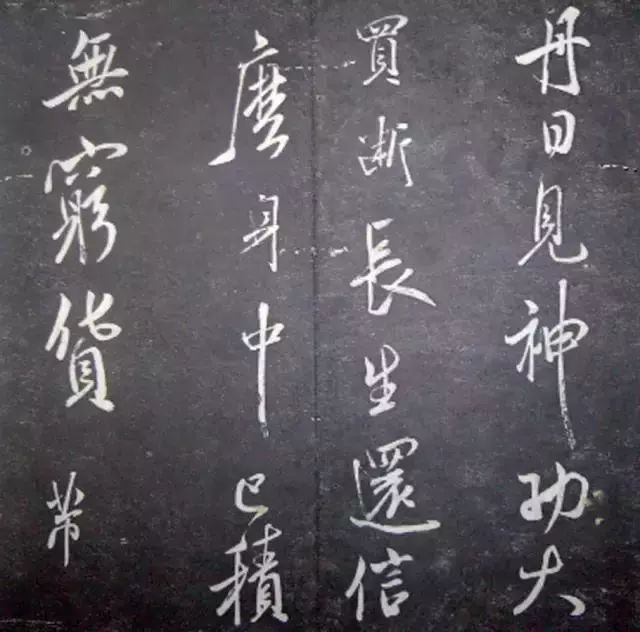 丹日見神功大
買断長生還信
麽身中已積
無窮貨 芾